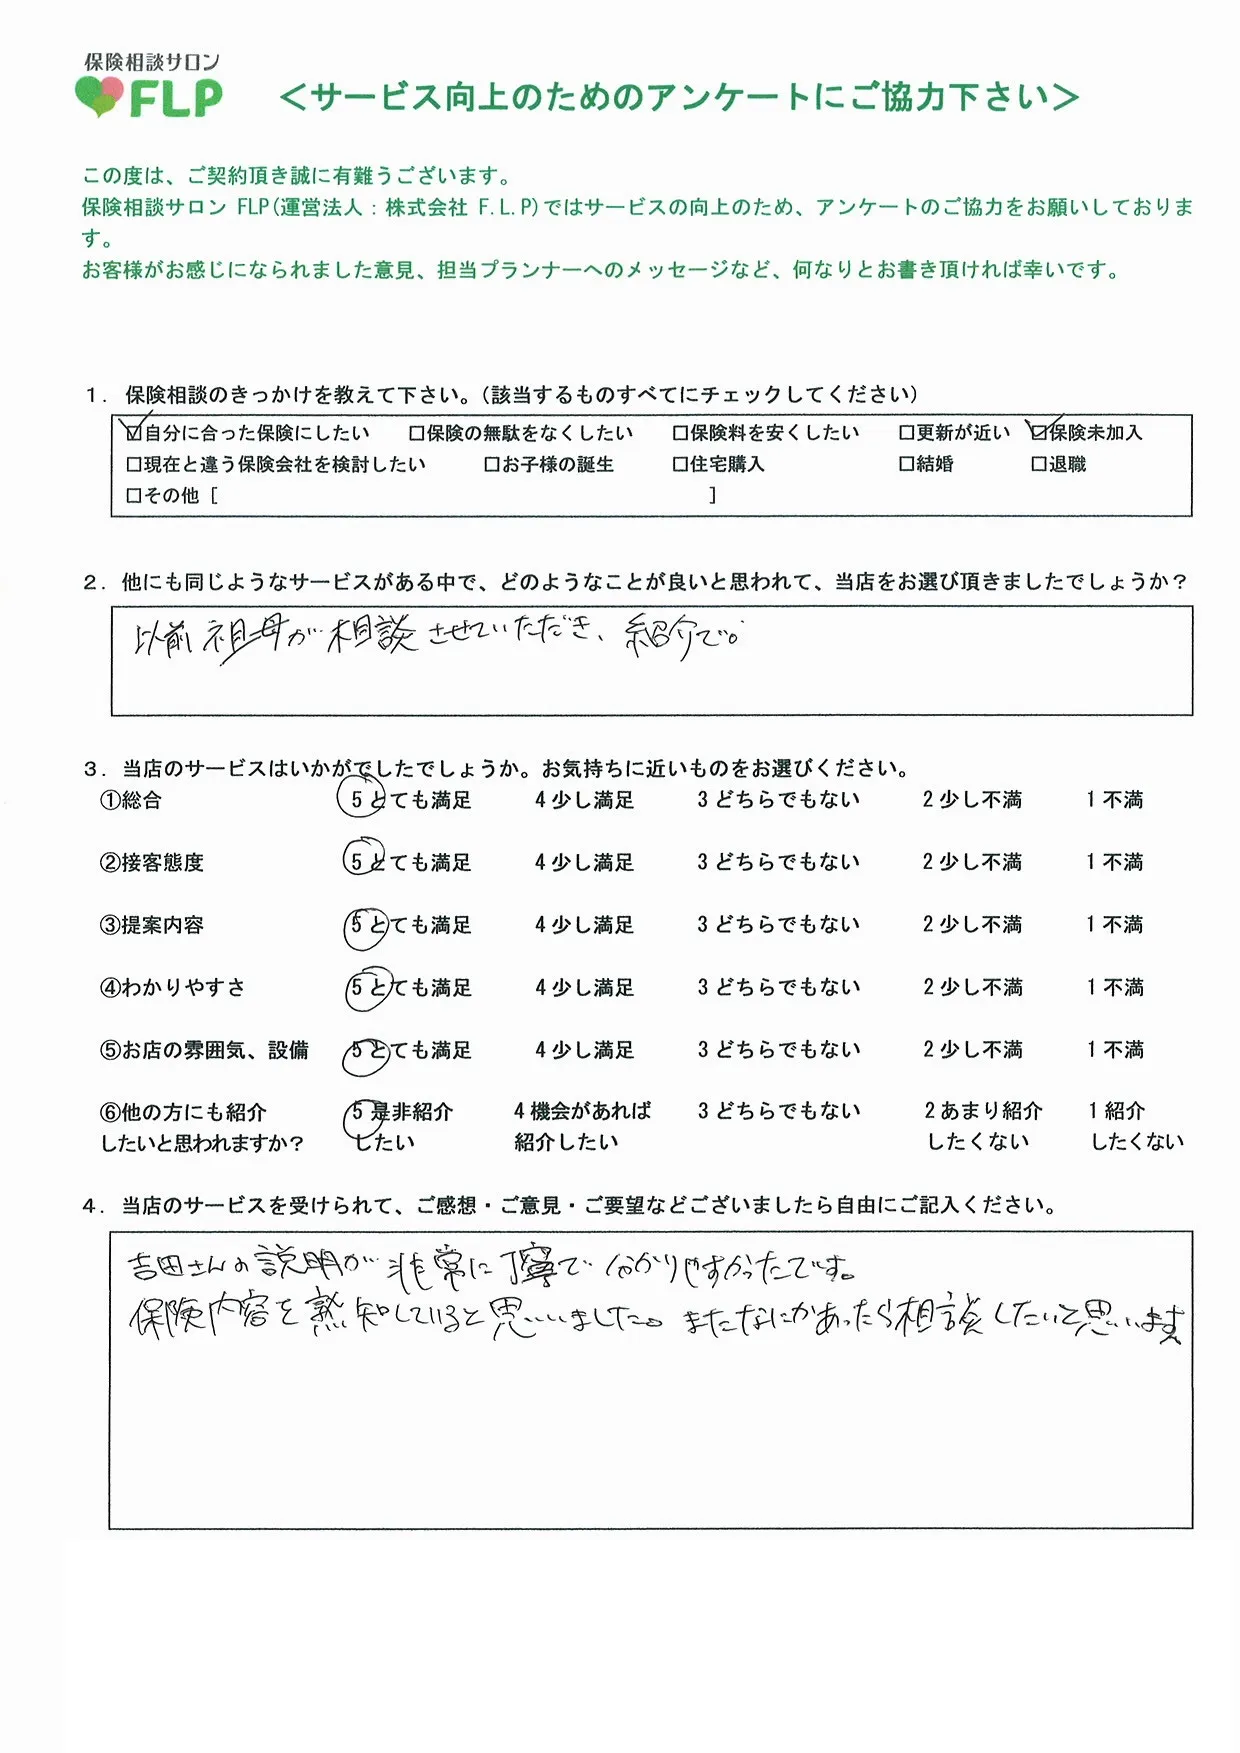 保険相談サロン
FLP
＜サービス向上のためのアンケートにご協力下さい＞
この度は、ご契約頂き誠に有難うございます。
保険相談サロン FLP(運営法人：株式会社 F.L.P)ではサービスの向上のため、アンケートのご協力をお願いしておりま
す。
お客様がお感じになられました意見、担当プランナーへのメッセージなど、何なりとお書き頂ければ幸いです。
１．保険相談のきっかけを教えて下さい。（該当するものすべてにチェックしてください）
☑自分に合った保険にしたい □保険の無駄をなくしたい □保険料を安くしたい □更新が近い ☑保険未加入
□現在と違う保険会社を検討したい □お子様の誕生 □住宅購入 □結婚 □退職
□その他［ ］
２．他にも同じようなサービスがある中で、どのようなことが良いと思われて、当店をお選び頂きましたでしょうか？
以前祖母が相談させていただき、紹介で。
３．当店のサービスはいかがでしたでしょうか。お気持ちに近いものをお選びください。
①総合 5 とても満足 4 少し満足 3 どちらでもない 2 少し不満 1 不満
②接客態度 5 とても満足 4 少し満足 3 どちらでもない 2 少し不満 1 不満
③提案内容 5 とても満足 4 少し満足 3 どちらでもない 2 少し不満 1 不満
④わかりやすさ 5 とても満足 4 少し満足 3 どちらでもない 2 少し不満 1 不満
⑤お店の雰囲気、設備 5 とても満足 4 少し満足 3 どちらでもない 2 少し不満 1 不満
⑥他の方にも紹介 5 是非紹介 4 機会があれば 3 どちらでもない 2 あまり紹介 1 紹介
したいと思われますか？ したい 紹介したい したくない したくない
４．当店のサービスを受けられて、ご感想・ご意見・ご要望などございましたら自由にご記入ください。
吉田さんの説明が非常に丁寧で分かりやすかったです。
保険内容を熟知していると思いました。またなにかあったら相談したいと思います